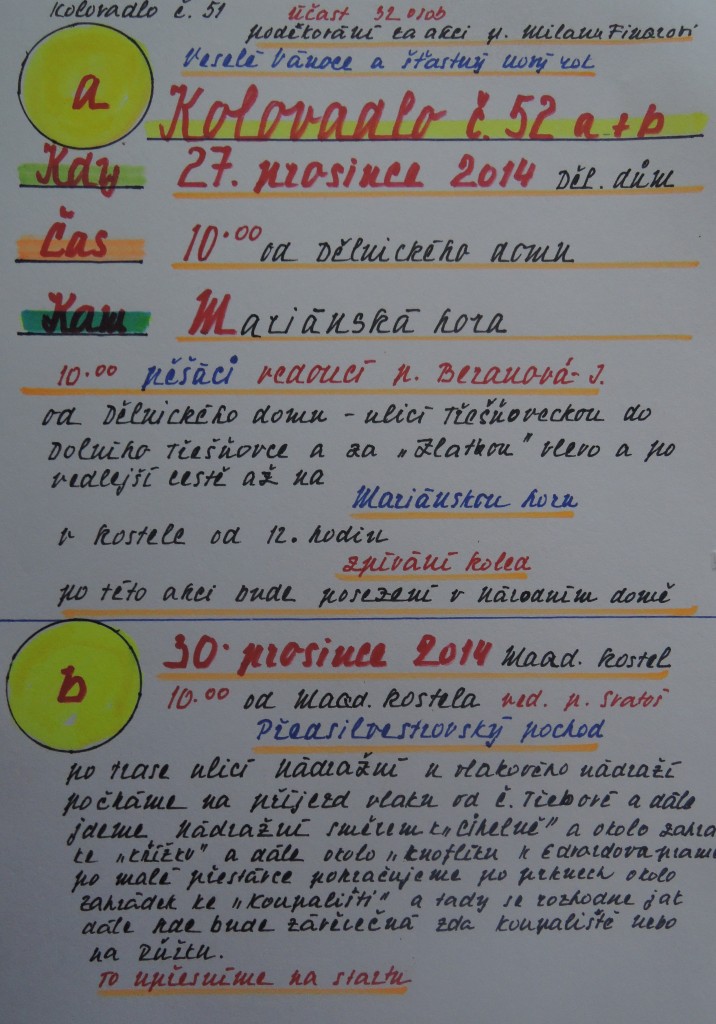 Kolovadlo č. 51 účast 32 osob
poděkování za akci p. Milanu Finarovi
Veselé Vánoce a šťastný nový rok
a Kolovadlo č. 52 a + b
Kdy 27. prosince 2014 Děl. dům
Čas 10.00 od Dělnického domu
Kam Mariánská hora
10.00 pěšáci vedoucí p. Beranová J.
od Dělnického domu - ulicí Třešňoveckou do
Dolního Třešňovce a za "Zlatkou" vlevo a po
vedlejší cestě až na
Mariánskou horu
v kostele od 12. hodin
zpívání koled
po této akci bude posezení v Národním domě
b 30. prosince 2014 Maad. kostel
10.00 od Maad. kostela ved. p. Svatoš
Předsilvestrovský pochod
po trase ulicí Nádražní u vlakového nádraží
počkáme na příjezd vlaku od č. Třebové a dále
jdeme Nádražní směrem k "Cihelně" a okolo zahrá
ke "křížku" a dále okolo "Knoflíku k Edvardova prame
po malé přestávce pokračujeme po prknech okolo
zahrádek ke "Koupališti" a tady se rozhodne jak
dále kde bude závěrečná zda koupaliště nebo
na Růžku.
To upřesníme na startu